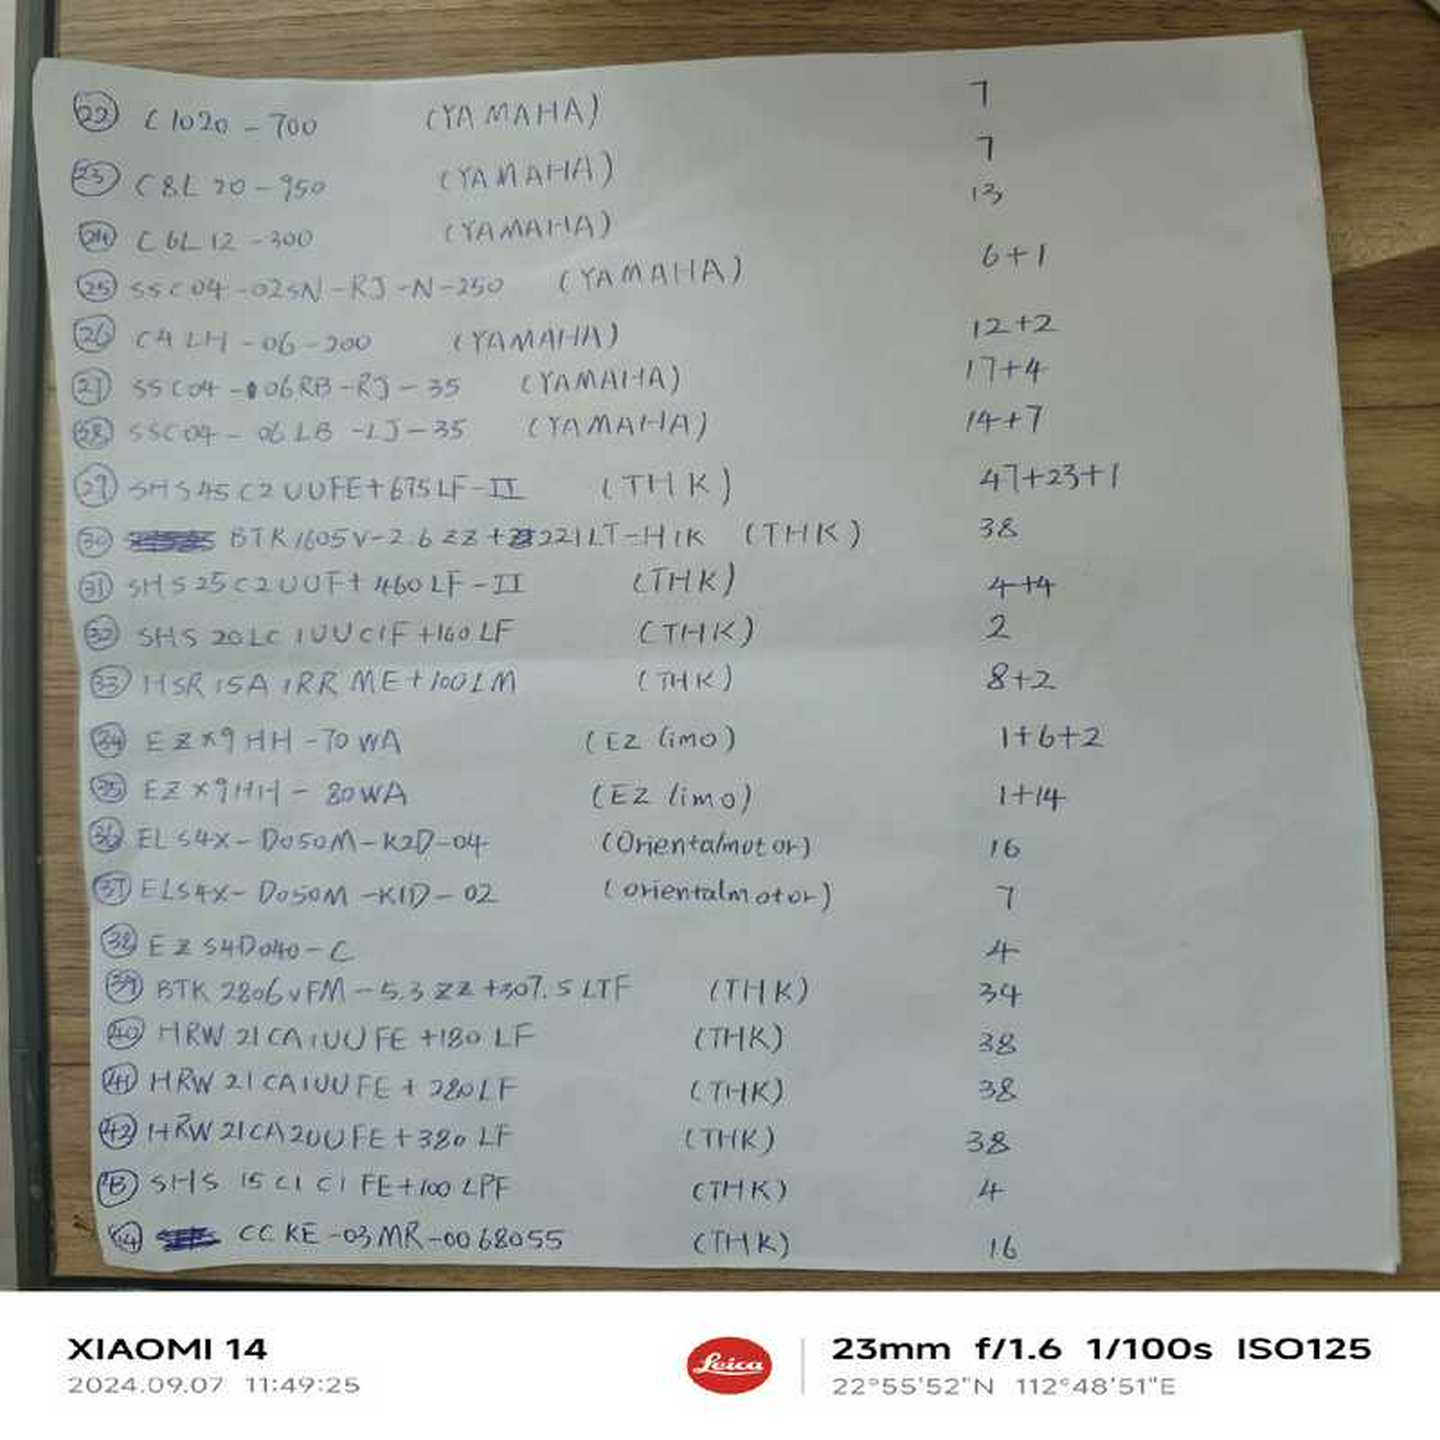 22 C1020-700 (YAMAHA) 7
23 C8L20-950 (YAMAHA) 7
24 C6L12-300 (YAMAHA) 13
25 SSC04-02SN-RJ-N-250 (YAMAHA) 6+1
26 C4LH-06-200 (YAMAHA) 12+2
27 SSC04-06RB-RJ-35 (YAMAHA) 17+4
28 SSC04-06LB-LJ-35 (YAMAHA) 14+7
29 SHS45C2UUFE+675LF-II (THK) 47+23+1
30 BTK1605V-2.6ZZ+221LT-H1K (THK) 38
31 SHS25C2UUF+460LF-II (THK) 4+4
32 SHS20LC1UUC1F+160LF (THK) 2
33 HSR15A1RRME+100LM (THK) 8+2
34 EZX9HH-70WA (EZ limo) 1+6+2
35 EZX9HH-80WA (EZ limo) 1+14
36 ELS4X-D050M-K2D-04 (Orientalmotor) 16
37 ELS4X-D050M-K1D-02 (orientalmotor) 7
38 EZS4D040-C 4
39 BTK2806VFM-5.3ZZ+307.5LTF (THK) 34
40 HRW21CA1UUFE+180LF (THK) 38
41 HRW21CA1UUFE+280LF (THK) 38
42 HRW21CA2UUFE+380LF (THK) 38
43 SHS15C1C1FE+100LPF (THK) 4
44 CCKE-03MR-0068055 (THK) 16
XIAOMI 14
2024.09.07 11:49:25
Leica
23mm f/1.6 1/100s ISO125
22°55'52"N 112°48'51"E